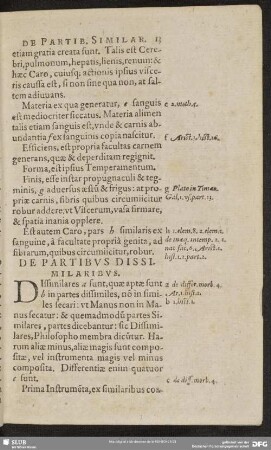 DE PARTIB. SIMILAR. 13
etiam gratia creata sunt. Talis est Cere-
bri, pulmonum, hepatis, lienis, renum: &
hæc Caro, cuiusq; actionis ipsius visce-
ris caussa est, si non sine qua non, at sal-
tem adiuuans.
Materia ex qua generatur, e sanguis e 2. meth. 4.
est mediocriter siccatus. Materia alimen
talis etiam sanguis est, vnde & carnis ab
undantia f ex sanguinis copia nascitur.
Efficiens, est propria facultas carnem
generans, quæ & deperditam regignit.
Forma, est ipsius Temperamentum.
Finis, esse instar propugnaculi & teg-
minis, g aduersus æstū & frigus: at pro- g Plato in Timæo.
priæ carnis, fibris quibus circumiicitur
robur addere: vt Viscerum, vasa firmare,
& spatia inania opplere.
Est autem Caro, pars h similaris ex
sanguine, à facultate propria genita, ad
fibrarum, quibus circumiicitur, robur.
DE PARTIBVS DISSI
MILARIBVS.
Dissimilares a sunt, quæ aptæ sunt a de differ. morb. 4.
b in partes dissimiles, nō in simi-
les secari: vt Manus non in Ma
nus secatur: & quemadmodū partes Si-
milares, partes dicebantur: sic Dissimi-
lares, Philosopho membra dicūtur. Ha-
rum aliæ minus, aliæ magis sunt compo-
sitæ, vel instrumenta magis vel minus
composita. Differentiæ enim quatuor
c sunt. c de diff. morb. 4.
Prima Instrumēta, ex similaribus con-
SLUB
DFG